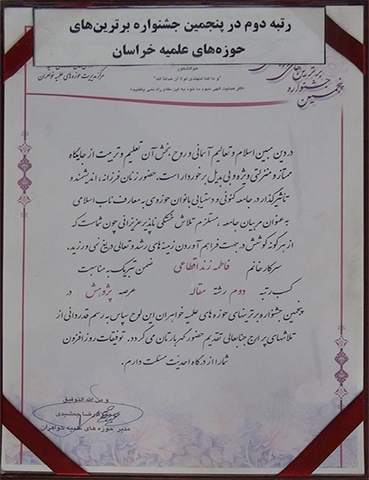 رتبه دوم در پنجمین جشنواره برترین‌های
حوزه‌های علمیه خراسان
مرکز مدیریت حوزه‌های علمیه خواهران
و ما کنا لنهتدی لولا ان هدانا الله
پنجمین جشنواره برترین‌های
در دین مبین اسلام و تعالیم آسمانی و روح بخش آن تعلیم و تربیت از جایگاه
ممتاز و منزلتی ویژه و بی بدیل برخوردار است. حضور زنان فرزانه، اندیشمند و
تاثیرگذار در جامعه کنونی و دستیابی بانوان حوزوی به معارف ناب اسلامی
به عنوان مربیان جامعه، مستلزم تلاش خستگی ناپذیر عزیزانی چون شماست که
از هرگونه کوشش در جهت فراهم آوردن زمینه های رشد و تعالی دریغ نمی ورزید.
سرکار خانم فاطمه زنداقطاعی ضمن تبریک به مناسبت
کسب رتبه دوم رشته مقاله عرصه پژوهش در
پنجمین جشنواره برترینهای حوزه های علمیه خواهران این لوح سپاس به رسم قدردانی از
تلاشهای پر ارج جنابعالی تقدیم حضور گهربارتان می گردد. توفیقات روزافزون
شما را از درگاه احدیت مسئلت دارم.
و من الله التوفیق
رضا جمشیدی
مدیر حوزه های علمیه خواهران